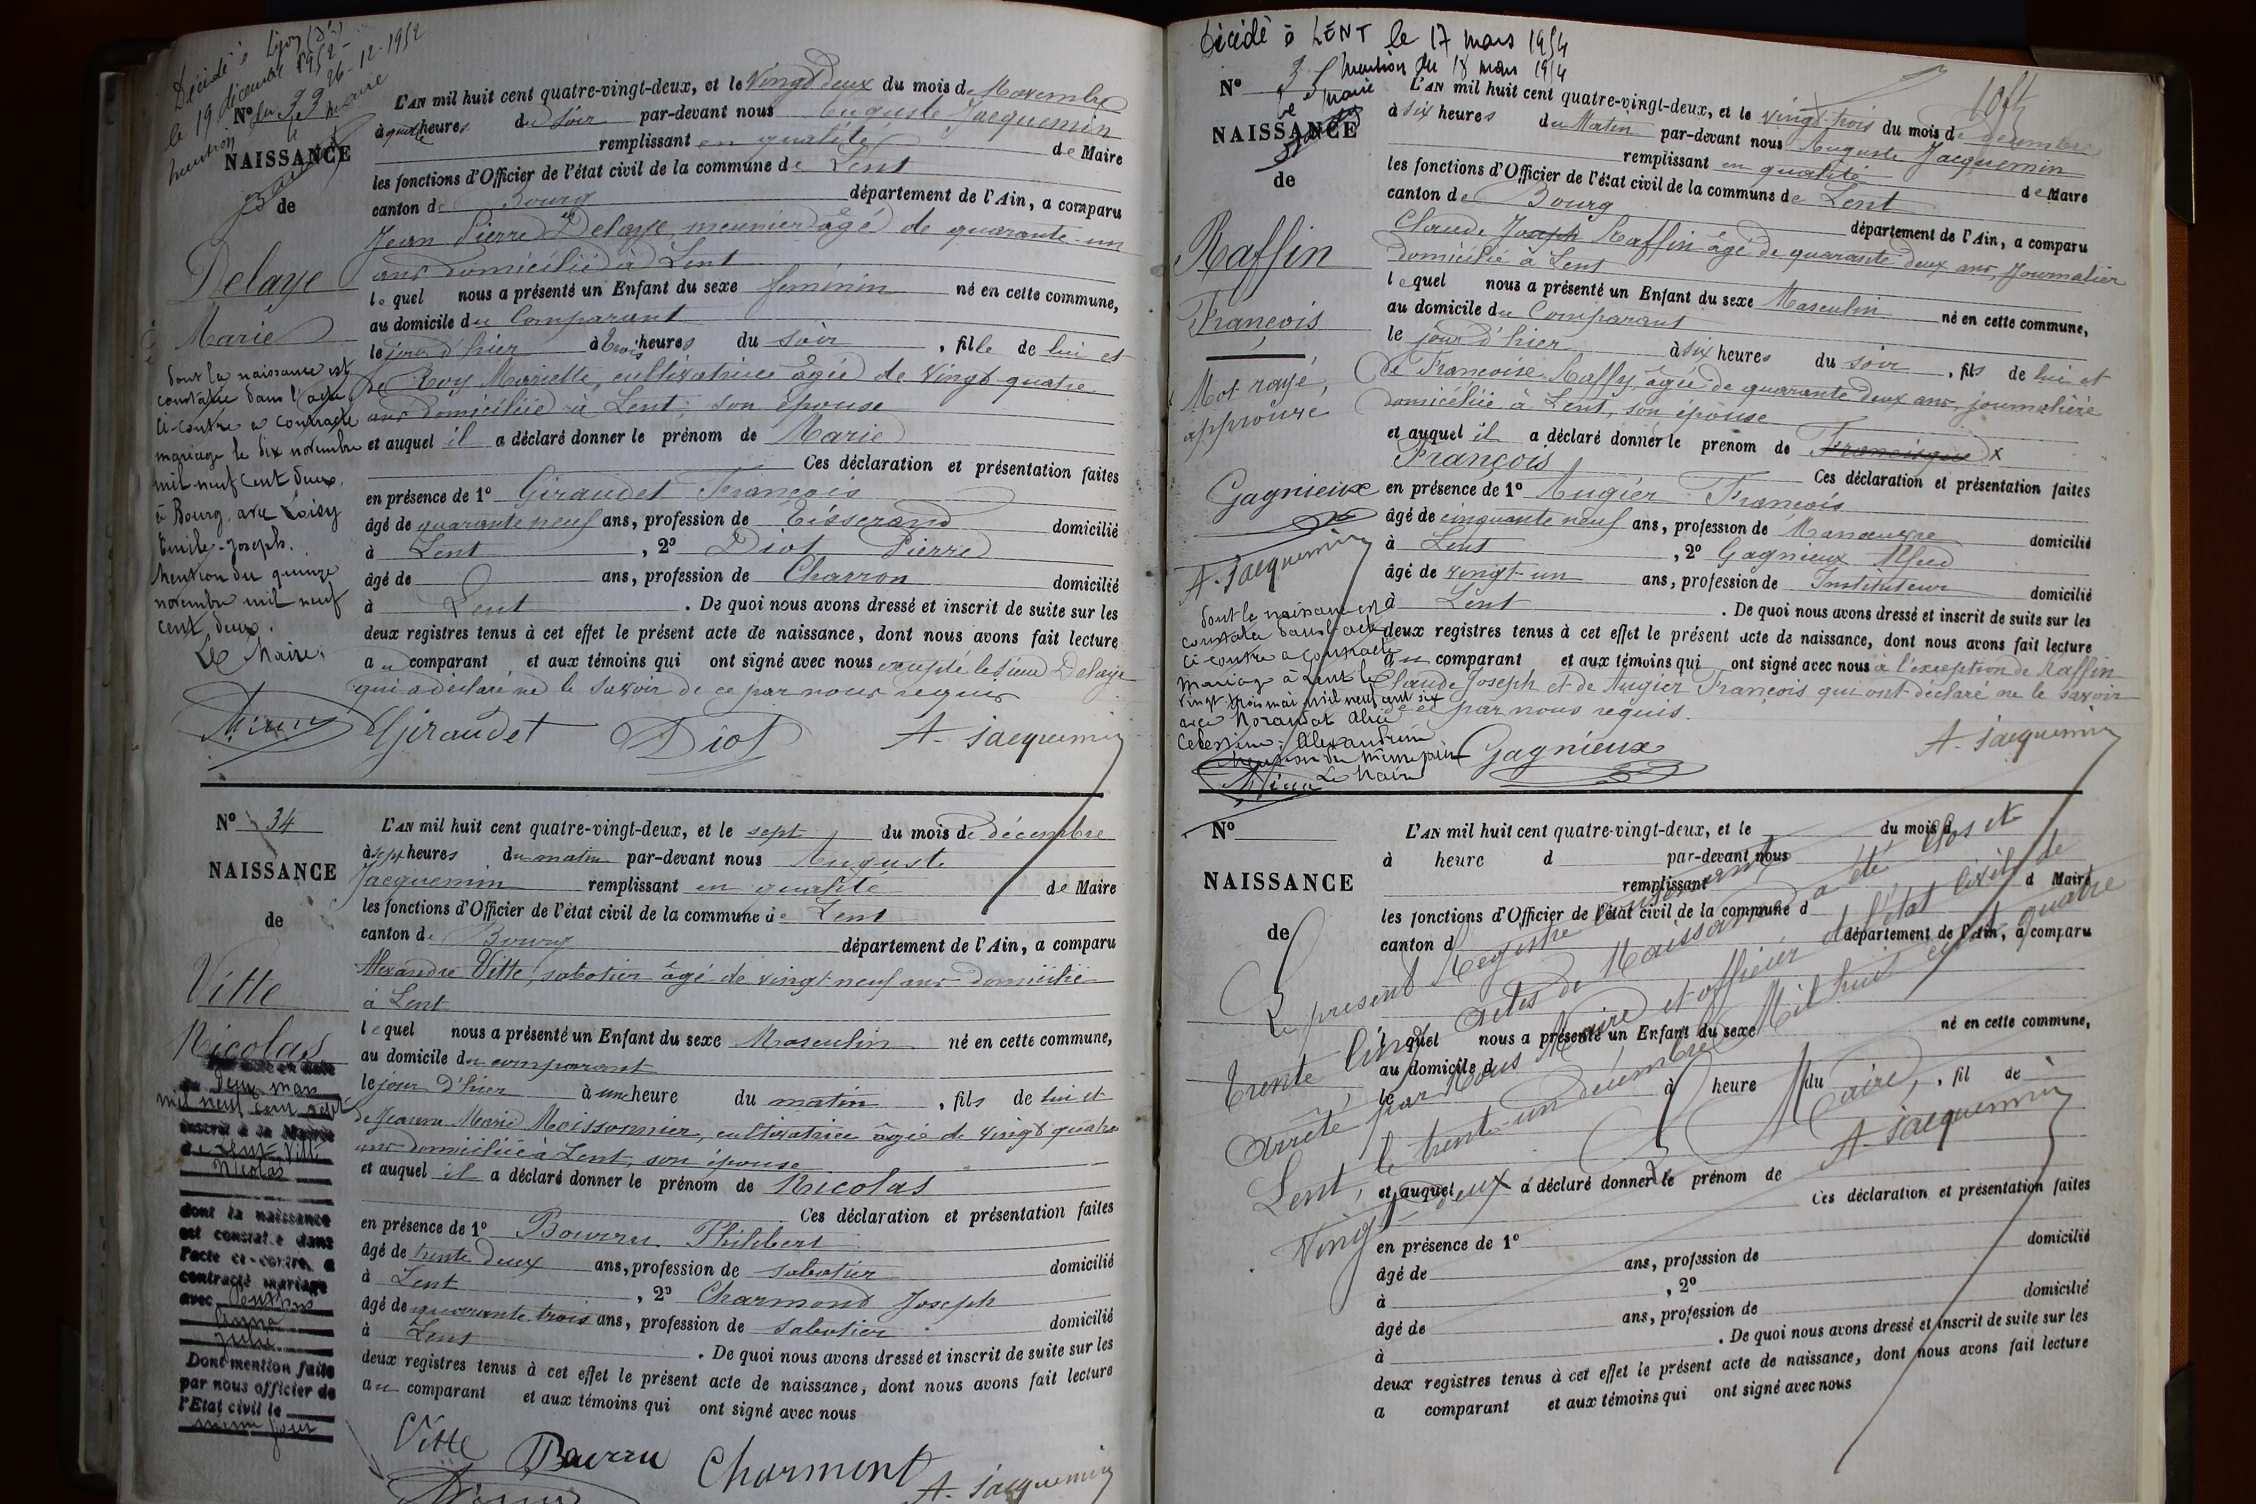 Décidé à Lyon (3e)
le 19 décembre 1952
mention 26-12-1952
le maire
No 33
NAISSANCE
de
Delaye
Marie
dont la naissance est
constatée dans l'acte
ci-contre a contracté
mariage le dix novembre
mil neuf cent deux
à Bourg avec Loisy
Emile-Joseph.
Mention du quinze
novembre mil neuf
cent deux.
Le Maire,
L'AN mil huit cent quatre-vingt-deux, et le Vingt deux du mois de Novembre
à quatre heures du soir par-devant nous Auguste Jacquemin
remplissant en qualité de Maire
les fonctions d'Officier de l'état civil de la commune de Lent
canton de Bourg département de l'Ain, a comparu
Jean Pierre Delaye, meunier âgé de quarante-un
ans domicilié à Lent
lequel nous a présenté un Enfant du sexe féminin né en cette commune,
au domicile du Comparant
le jour d'hier à trois heures du soir, fille de lui et
de Roy Mariette, cultivatrice âgée de vingt quatre
ans domiciliée à Lent, son épouse
et auquel il a déclaré donner le prénom de Marie
Ces déclaration et présentation faites
en présence de 1o Giraudet François
âgé de quarante neuf ans, profession de Tisserand domicilié
à Lent, 2o Diot Pierre
âgé de ans, profession de Charron domicilié
à Lent. De quoi nous avons dressé et inscrit de suite sur les
deux registres tenus à cet effet le présent acte de naissance, dont nous avons fait lecture
au comparant et aux témoins qui ont signé avec nous excepté le sieur Delaye
qui a déclaré ne le savoir de ce par nous requis
Giraudet Diot A. Jacquemin
No 34
NAISSANCE
de
Vitte
Nicolas
deux mars
mil neuf cent sept
inscrit à la Mairie
de Lent, Vitte
Nicolas
dont la naissance
est constatée dans
l'acte ci-contre, a
contracté mariage
avec
Anna
Julie
Dont mention faite
par nous officier de
l'Etat civil le
même jour
L'AN mil huit cent quatre-vingt-deux, et le sept du mois de décembre
à sept heures du matin par-devant nous Auguste
Jacquemin remplissant en qualité de Maire
les fonctions d'Officier de l'état civil de la commune de Lent
canton de Bourg département de l'Ain, a comparu
Alexandre Vitte, sabotier âgé de vingt neuf ans domicilié
à Lent
lequel nous a présenté un Enfant du sexe Masculin né en cette commune,
au domicile du comparant
le jour d'hier à une heure du matin, fils de lui et
de Jeanne Marie Moissonnier, cultivatrice âgée de vingt quatre
ans domiciliée à Lent, son épouse
et auquel il a déclaré donner le prénom de Nicolas
Ces déclaration et présentation faites
en présence de 1o Bourru Philibert
âgé de trente deux ans, profession de sabotier domicilié
à Lent, 2o Charmond Joseph
âgé de quarante trois ans, profession de sabotier domicilié
à Lent. De quoi nous avons dressé et inscrit de suite sur les
deux registres tenus à cet effet le présent acte de naissance, dont nous avons fait lecture
au comparant et aux témoins qui ont signé avec nous
Vitte Bourru Charmont A. Jacquemin
Décidé à LENT le 17 mars 1954
Mention du 18 mars 1954
le maire
No 35
NAISSANCE
de
Raffin
François
Mot rayé,
approuvé
Gagnieux
A. Jacquemin
dont la naissance est
constatée dans l'acte
ci-contre a contracté
mariage à Lent le
vingt trois mai mil neuf cent six
avec Morandat Alice
Célestine Alexandrine
Mention du même jour
Le Maire
L'AN mil huit cent quatre-vingt-deux, et le vingt-trois du mois de décembre
à six heures du Matin par-devant nous Auguste Jacquemin
remplissant en qualité de Maire
les fonctions d'Officier de l'état civil de la commune de Lent
canton de Bourg département de l'Ain, a comparu
Claude Joseph Raffin âgé de quarante deux ans, Journalier
domicilié à Lent
lequel nous a présenté un Enfant du sexe Masculin né en cette commune,
au domicile du Comparant
le jour d'hier à six heures du soir, fils de lui et
de Françoise Raffy, âgée de quarante deux ans, journalière
domiciliée à Lent, son épouse
et auquel il a déclaré donner le prénom de Francisque x
François Ces déclaration et présentation faites
en présence de 1o Augier François
âgé de cinquante neuf ans, profession de Manœuvre domicilié
à Lent, 2o Gagnieux Alfred
âgé de vingt-un ans, profession de Instituteur domicilié
à Lent. De quoi nous avons dressé et inscrit de suite sur les
deux registres tenus à cet effet le présent acte de naissance, dont nous avons fait lecture
au comparant et aux témoins qui ont signé avec nous à l'exception de Raffin
Claude Joseph et de Augier François qui ont déclaré ne le savoir
de ce par nous requis.
Gagnieux A. Jacquemin
No
NAISSANCE
de
L'AN mil huit cent quatre-vingt-deux, et le du mois d
à heure d par-devant nous
remplissant d Maire
les fonctions d'Officier de l'état civil de la commune d
canton d département de l'Ain, a comparu
lequel nous a présenté un Enfant du sexe né en cette commune,
au domicile d
le à heure du , fil de
et auquel a déclaré donner le prénom de
Ces déclaration et présentation faites
en présence de 1o
âgé de ans, profession de domicilié
à , 2o
âgé de ans, profession de domicilié
à . De quoi nous avons dressé et inscrit de suite sur les
deux registres tenus à cet effet le présent acte de naissance, dont nous avons fait lecture
a comparant et aux témoins qui ont signé avec nous
Le présent Registre contenant
trente cinq actes de Naissance a été clos et
arrêté par Nous Maire et officier de l'état civil de
Lent, le trente-un décembre Mil huit cent quatre
Vingt-deux
Le Maire,
A. Jacquemin